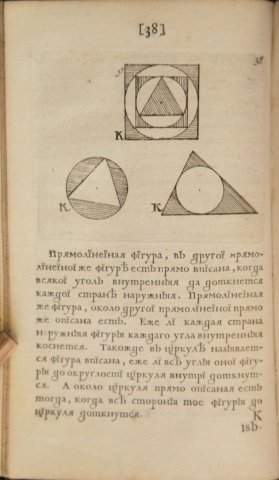 [38]
38
К
К
К
Прямолінеіная фігура, въ другоі прямо-
лінеіноі же фігурѣ есть прямо впісана, когда
всякоі уголъ внутренныя да доткнется
каждоі странѣ наружныя. Прямолінеіная
же фігура, около другоі прямолінеіноі прямо
же опісана есть. Еже лі каждая страна
наружныя фігуры каждаго угла внутренныя
коснется. Такожде въ ціркулѣ называет-
ся фігура впісана, еже лі всѣ углы оноі фігу-
ры до округлості ціркуля внутрі доткнут-
ся. А около ціркуля прямо опісаная есть
тогда, когда всѣ стороны тое фігуры до
ціркуля доткнутся.
К
Изъ-